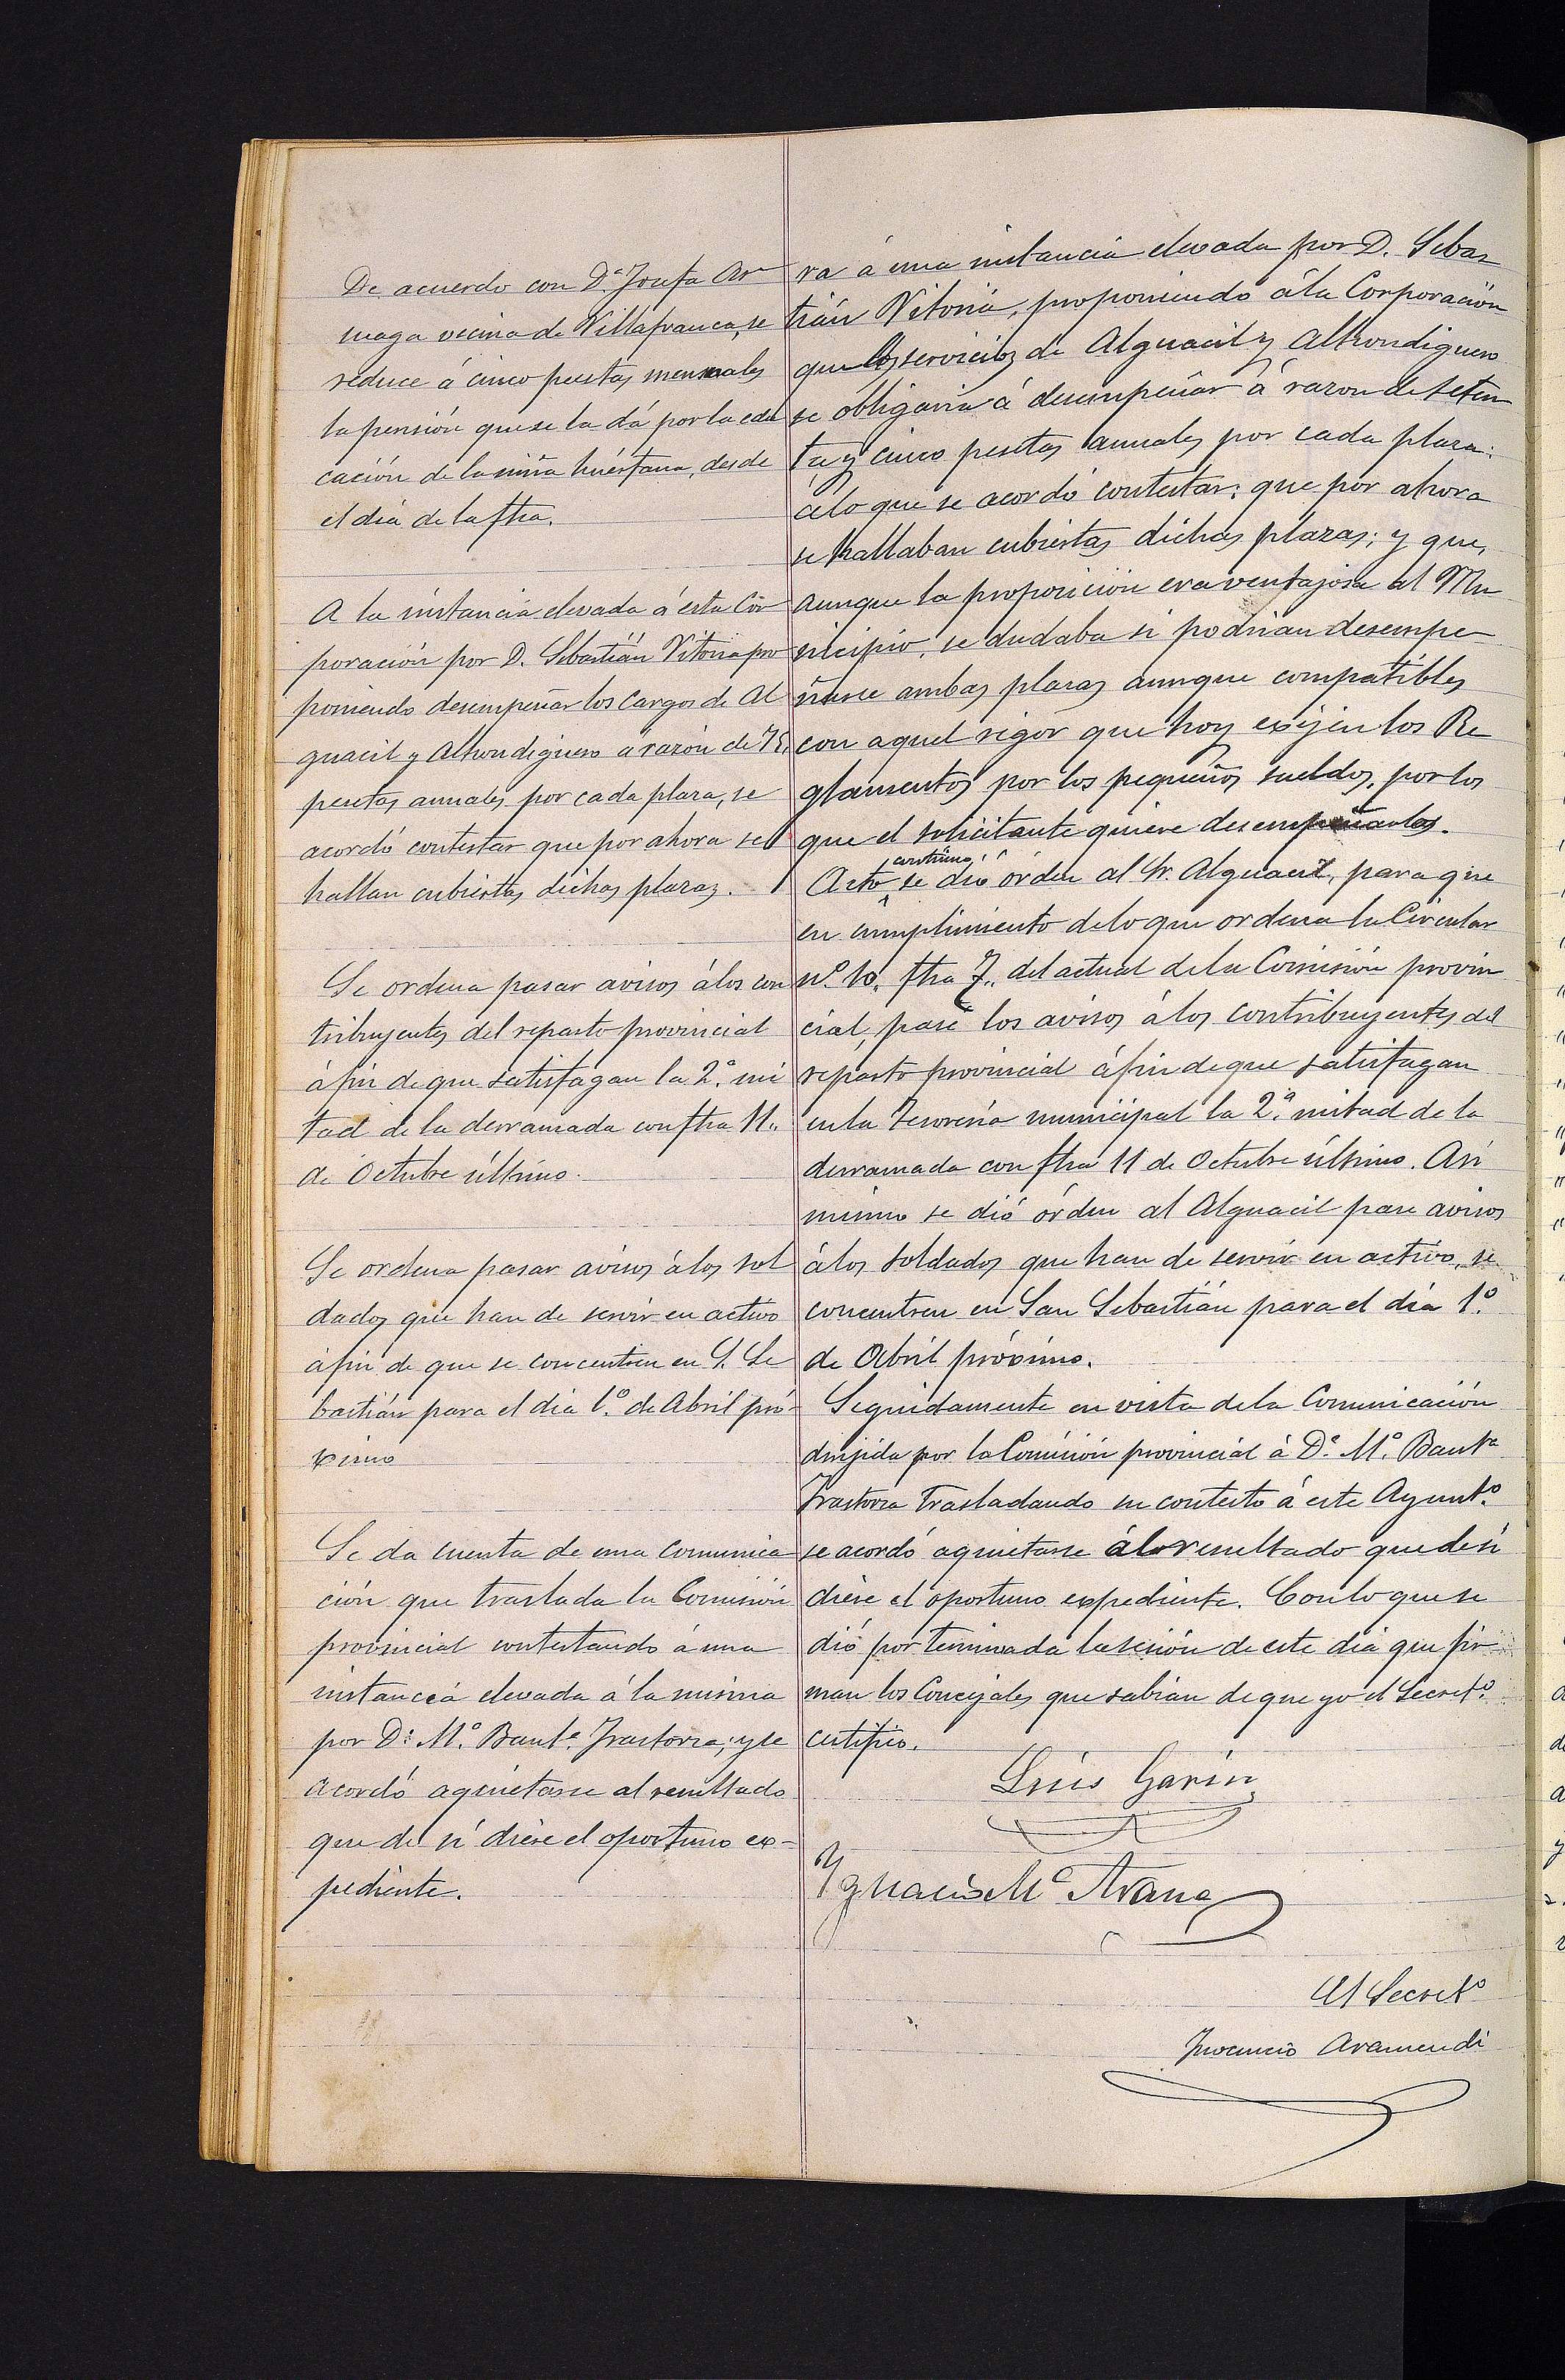 De acuerdo con D.ª Josefa Ar
maga vecina de Villafranca, se
reduce á cinco pesetas mensuales
la pensión que se la dá por la edu
cación de la niña huérfana, desde
el dia de la fha.
A la instancia elevada á esta Cor
poración por D. Sebastián Vitoria pro
poniendo desempeñar los cargos de Al
guacil y Alhondiguero á razón de 75,
pesetas anuales por cada plaza, se
acordó contestar que por ahora se
hallan cubiertas dichas plazas.
Se ordena pasar avisos á los con
tribuyentes del reparto provincial
á fin de que satisfagan la 2.ª mi
tad de la derramada con fha 11,,
de Octubre último.
Se ordena pasar avisos á los sol
dados que han de servir en activo
á fin de que se concentren en S. Se
bastián para el dia 1.º de Abril pró-
ximo
Se da cuenta de una comunica
ción que traslada la Comisión
provincial contestando á una
instancia elevada á la misma
por D.ª M.ª Baut.ª Irastorza; y se
acordó aquietarse al resultado
que de sí diere el oportuno ex-
pediente.
ra á una instancia elevada por D. Sebas
tián Vitoria, proponiendo á la Corporación
que los servicios de Alguacil y Alhondiguero
se obligaria á desempeñar á razon de seten
ta y cinco pesetas anuales por cada plaza:
á lo que se acordó contestar: que por ahora
se hallaban cubiertas dichas plazas; y que,
aunque la proposición era ventajosa al Mu
nicipio, se dudaba si podrian desempe
ñarse ambas plazas aunque compatibles
con aquel rigor que hoy exijen los Re
glamentos por los pequeños sueldos, por los
que el solicitante quiere desempeñarlos.
Acto contínuo se dió órden al Sr. Alguacil, para que
en cumplimiento de lo que ordena la Circular
nº. 10, fha 7,, del actual de la Comisión provin
cial, pase los avisos á los contribuyentes del
reparto provincial á fin de que satisfagan
en la Tesorería municipal la 2.ª mitad de la
derramada con fha 11 de Octubre último. Asi
mismo se dió órden al Alguacil pase avisos
á los soldados que han de servir en activo, se
concentren en San Sebastián para el dia 1.º
de Abril próximo.
Seguidamente en vista de la Comunicación
dirijida por la Comisión provincial á D.ª M.ª Baut.ª
Irastorza trasladando su contesto á este Ayunt.º
se acordó aquietarse á lo resultado que de sí
diere el oportuno expediente. Con lo que se
dió por terminada la sesión de este dia que fir
man los Concejales que sabian de que yo el Secret.º
certifico.
Luis Garin
Ygnacio M.ª Arana
El Secret.º
Inocencio Aramendi